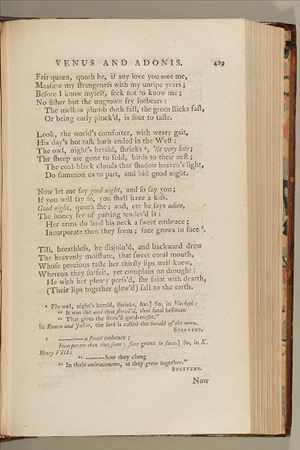 VENUS AND ADONIS. 429
Fair queen, quoth he, if any love you owe me,
Measure my strangeness with my unripe years;
Before I know myself, seek not to know me;
No fisher but the ungrown fry forbears:
The mellow plumb doth fall, the green sticks fast,
Or being early pluck'd, is sour to taste.
Look, the world's comforter, with weary gait,
His day's hot task hath ended in the West:
The owl, night's herald, shrieks ⁴, 'tis very late;
The sheep are gone to fold, birds to their nest;
The coal-black clouds that shadow heaven's light,
Do summon us to part, and bid good night.
Now let me say good night, and so say you;
If you will say so, you shall have a kiss.
Good night, quoth she; and, ere he says adieu,
The honey fee of parting tender'd is:
Her arms do lend his neck a sweet embrace;
Incorporate then they seem; face grows to face ⁵.
Till, breathless, he disjoin'd, and backward drew
The heavenly moisture, that sweet coral mouth,
Whose precious taste her thirsty lips well knew,
Whereon they surfeit, yet complain on drought:
He with her plenty press'd, she faint with dearth,
(Their lips together glew'd) fall to the earth.
⁴ The owl, night's herald, shrieks, &c.] So, in Macbeth:
"It was the owl that shriek'd, that fatal bellman
"That gives the stern'st good-night."
In Romeo and Juliet, the lark is called the herald of the morn.
STEEVENS.
⁵ —— a sweet embrace;
Incorporate then they seem; face grows to face.] So, in K.
Henry VIII:
"—— how they clung
"In their embracements, as they grew together."
STEEVENS.
Now